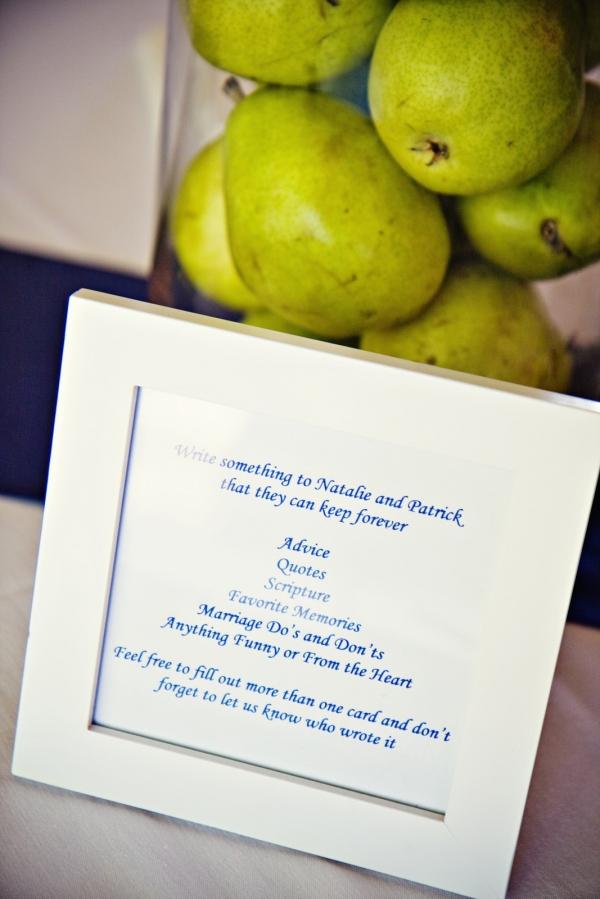 Write something to Natalie and Patrick
that they can keep forever
Advice
Quotes
Scripture
Favorite Memories
Marriage Do's and Don'ts
Anything Funny or From the Heart
Feel free to fill out more than one card and don't
forget to let us know who wrote it